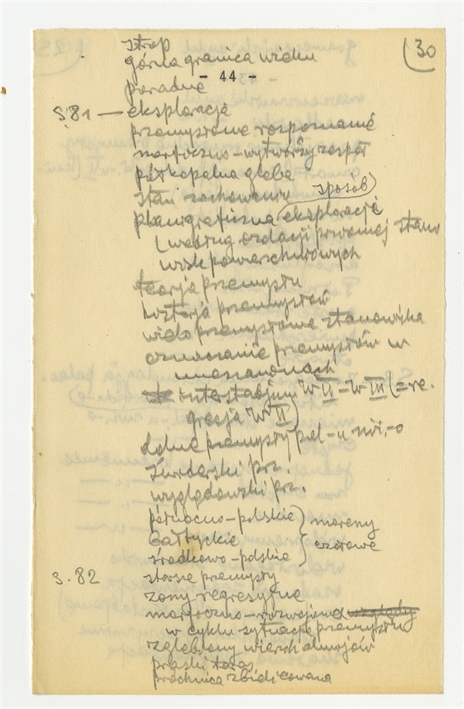 (30
strop
górna granica wieku
- 44 -
poradnie
S.81 — eksploracja
przemysłowe rozpoznanie
morficzno-wytwórczy zespół
półkopalna gleba
stan zachowania
sposób
planigraficzna eksploracji
(według ordacji stanu
wisk powierzchniowych
teorja przemysłu
historja przemysłów
wielo przemysłowe stanowiska
oznaczanie przemysłów w
mieszaninach
interstadjum W II - W III (= re-
gresja W II)
dolne przemysły
Zwierski prz.
wyględowski prz.
północno-polskie
bałtyckie
środkowo-polskie
moreny
czołowe
S. 82
starsze przemysły
zony regresyjne
morficzno-rozwojowe
w cyklu sytuacje przemysłu
zaglebiony wierch aluwjów
praski taras
próchnica zbielicowana